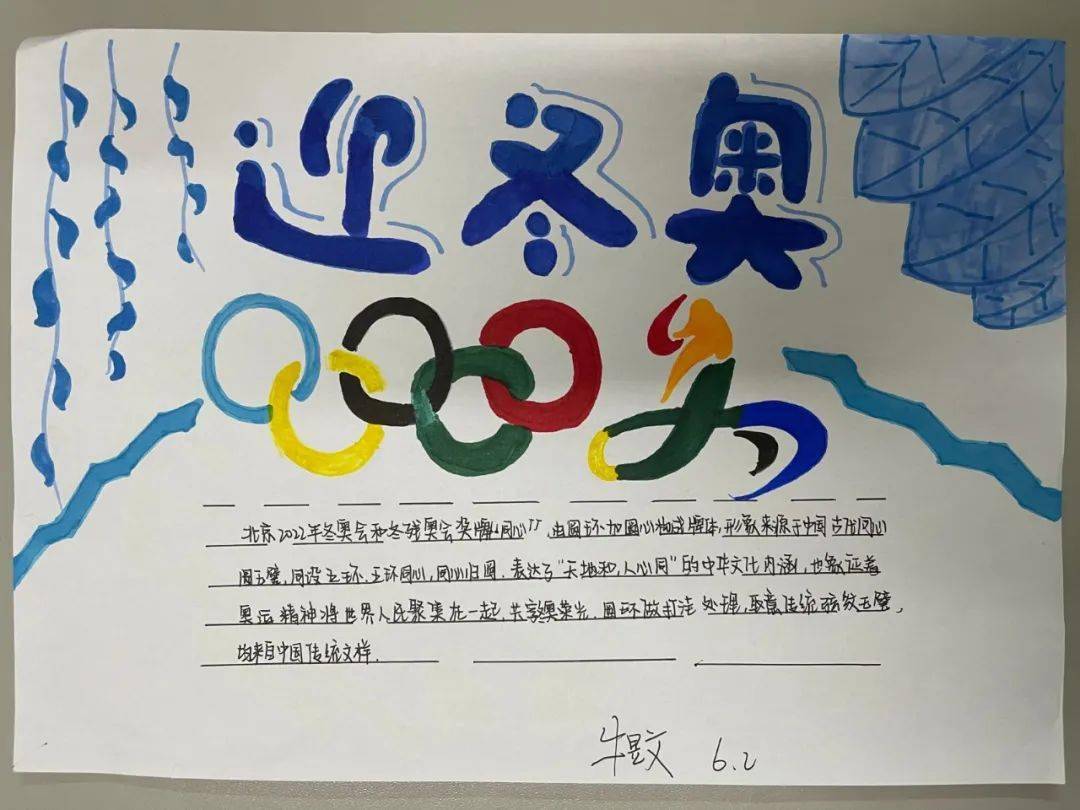 迎冬奥
北京2022年冬奥会和冬残奥会奖牌“同心”,由圆环加圆心构成牌体,形象来源于中国古代同心
圆玉璧,同设五环.五环同心,同心归圆.表达了“天地和,人心同”的中华文化内涵,也象征着
奥运精神将世界人民聚集在一起,共享奥荣光.圆环做打洼处理,取意传统弦纹玉璧,
均来自中国传统文样.
牛昱文 6.2